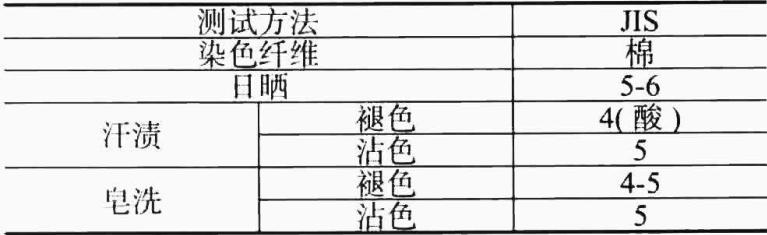 测试方法 JIS
染色纤维 棉
日晒 5-6
汗渍 褪色 4(酸)
沾色 5
皂洗 褪色 4-5
沾色 5